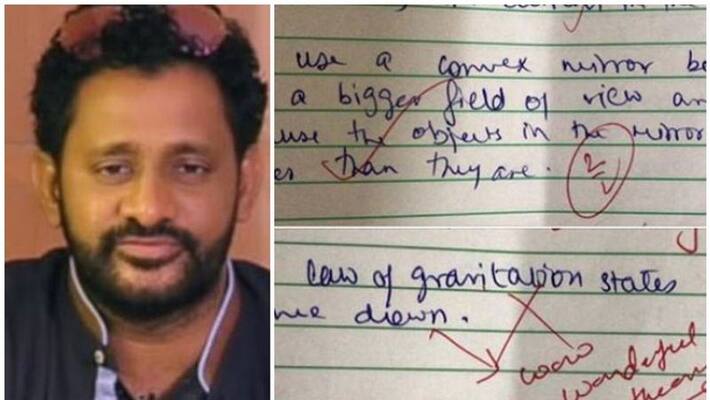 use a convex mirror be
a bigger field of view an
use the objects in the mirror
es than they are.
2
law of gravitation states
me down.
waao
wonderful